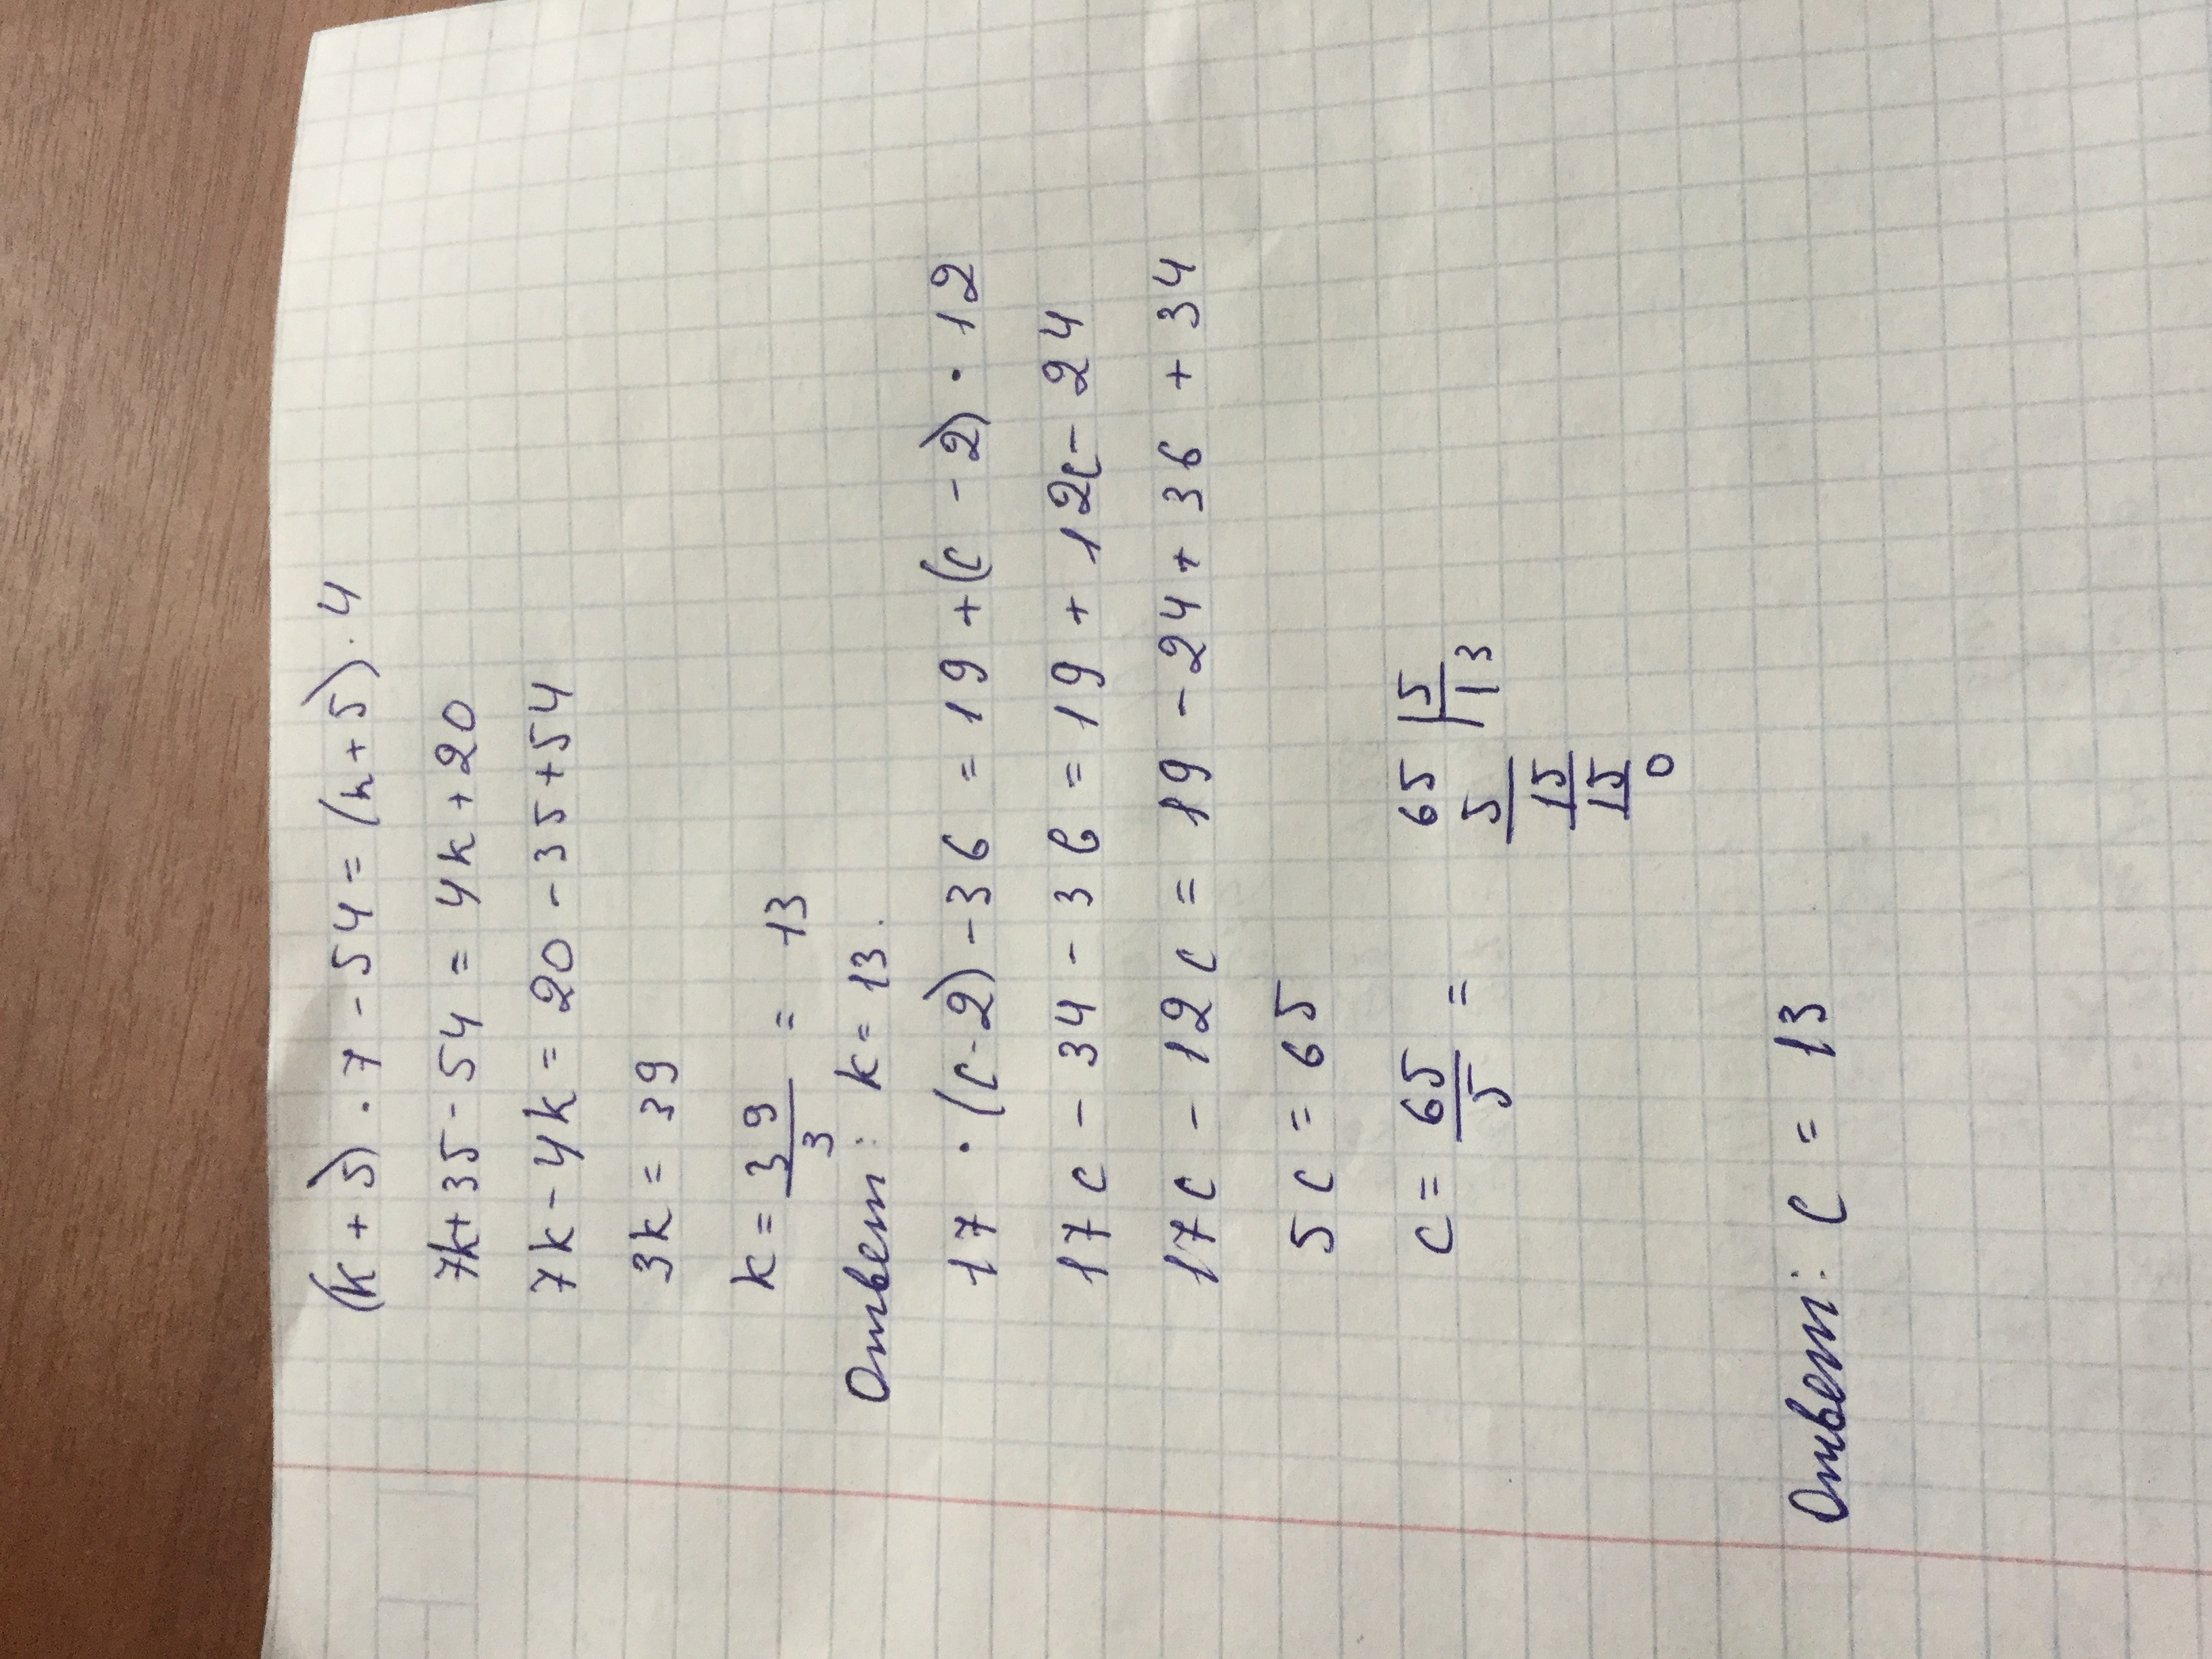 (k + 5) · 7 - 54 = (k + 5) · 4
7k + 35 - 54 = 4k + 20
7k - 4k = 20 - 35 + 54
3k = 39
k = 39/3 = 13
Ответ: k = 13.
17 · (c - 2) - 36 = 19 + (c - 2) · 12
17c - 34 - 36 = 19 + 12c - 24
17c - 12c = 19 - 24 + 36 + 34
5c = 65
c = 65/5 = 65 | 5
5 13
15
15
0
Ответ: c = 13